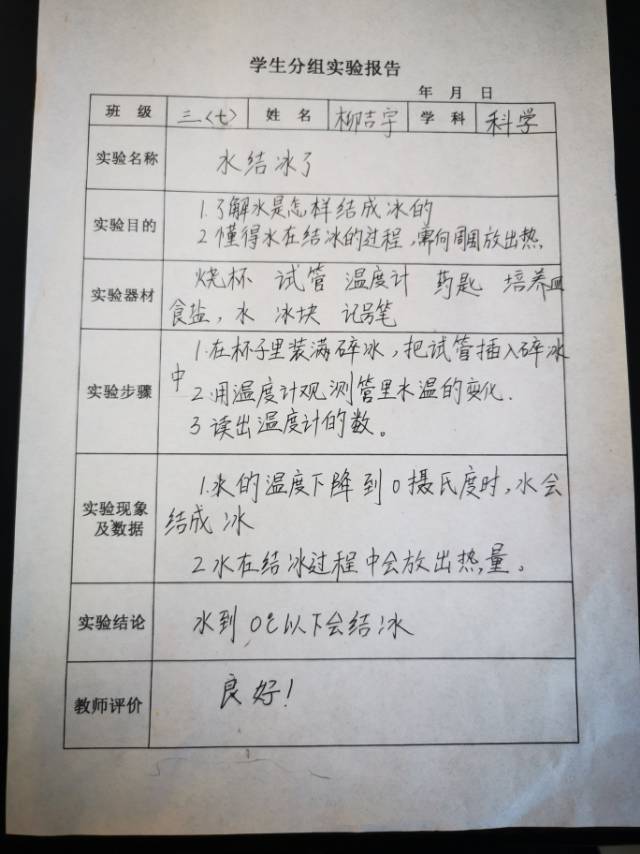 学生分组实验报告
年 月 日
班 级 三〈七〉 姓 名 柳吉宇 学 科 科学
实验名称 水结冰了
实验目的 1.了解水是怎样结成冰的
2 懂得水在结冰的过程,需向周围放出热.
实验器材 烧杯 试管 温度计 药匙 培养皿
食盐,水 冰块 记号笔
实验步骤 1.在杯子里装满碎冰,把试管插入碎冰
中 2.用温度计观测管里水温的变化.
3 读出温度计的数。
实验现象及数据 1.水的温度下降到0摄氏度时,水会
结成冰
2 水在结冰过程中会放出热量。
实验结论 水到0℃以下会结冰
教师评价 良好!